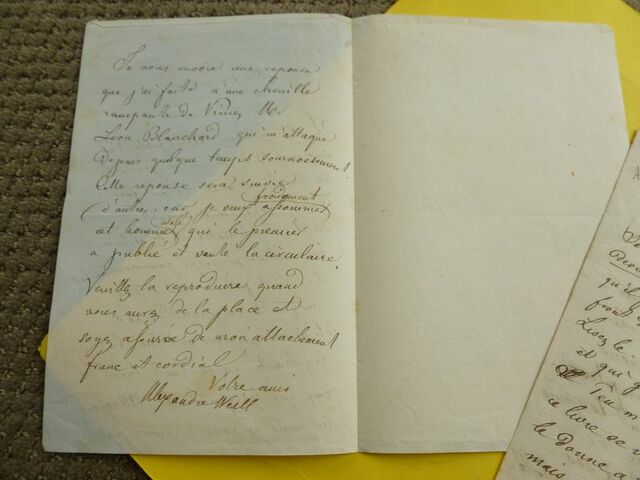 Je vous envoie une reponse
que j'ai faite à une chenille
rampante de Mr
Léon Blanchard qui m'attaque
Depuis quelque temps sournoisement.
Cette reponse sera suivie
d'autres, car je veux froidement assommer
cet homme qui le premier
a publié et vanté la circulaire.
Veuillez la reproduire quand
vous aurez de la place et
soyez assurée de mon attachement
franc et cordial
Votre ami
Alexandre Weill
qu'il
Lisez le
et qui
ce livre se
le donne a
mais